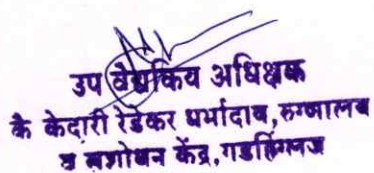 उप वैद्यकिय अधिक्षक
कै केदारी रेडेकर धर्मादाव, रुग्णालब
व संशोधन केंद्र, गडहिंग्लज